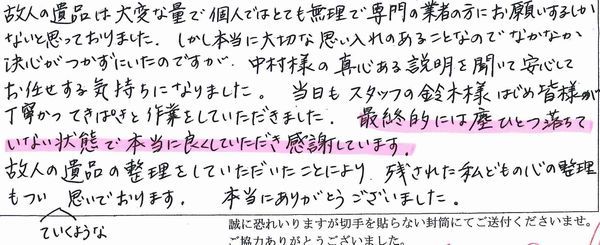 故人の遺品は大変な量で個人ではとても無理で専門の業者の方にお願いするしか
ないと思っておりました。しかし本当に大切な思い入れのあることなのでなかなか
決心がつかずにいたのですが、中村様の真心ある説明を聞いて安心して
お任せする気持ちになりました。当日もスタッフの鈴木様はじめ皆様が
丁寧かつてきぱきと作業をしていただきました。最終的には塵ひとつ落ちて
いない状態で本当に良くしていただき感謝しています。
故人の遺品の整理をしていただいたことにより、残された私どもの心の整理
もつい 思いでおります。本当にありがとうございました。
ていくような
誠に恐れいりますが切手を貼らない封筒にてご送付くださいませ。
ご協力ありがとうございました。